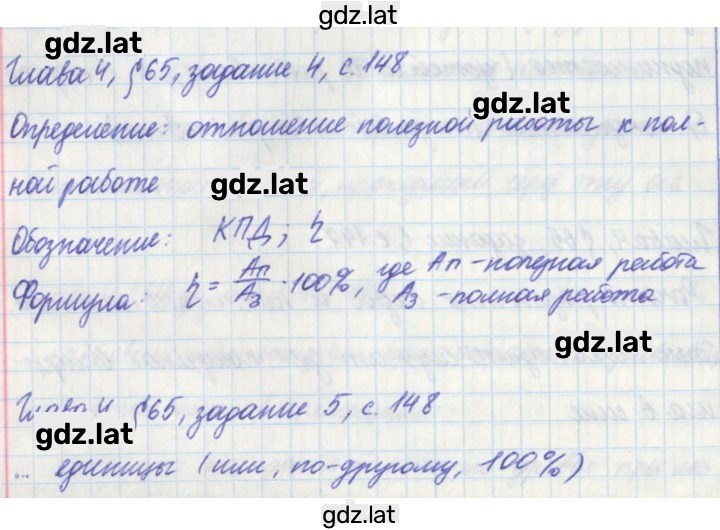 gdz.lat
gdz.lat
Глава 4, §65, задание 4, с. 148
gdz.lat
Определение: отношение полезной работы к пол-
ной работе
gdz.lat
Обозначение: КПД; η
Формула: η = Aп/Aз · 100%, где Aп - полезная работа
Aз - полная работа
gdz.lat
Глава 4, §65, задание 5, с. 148
gdz.lat
... единицы (или, по-другому, 100%)
gdz.lat